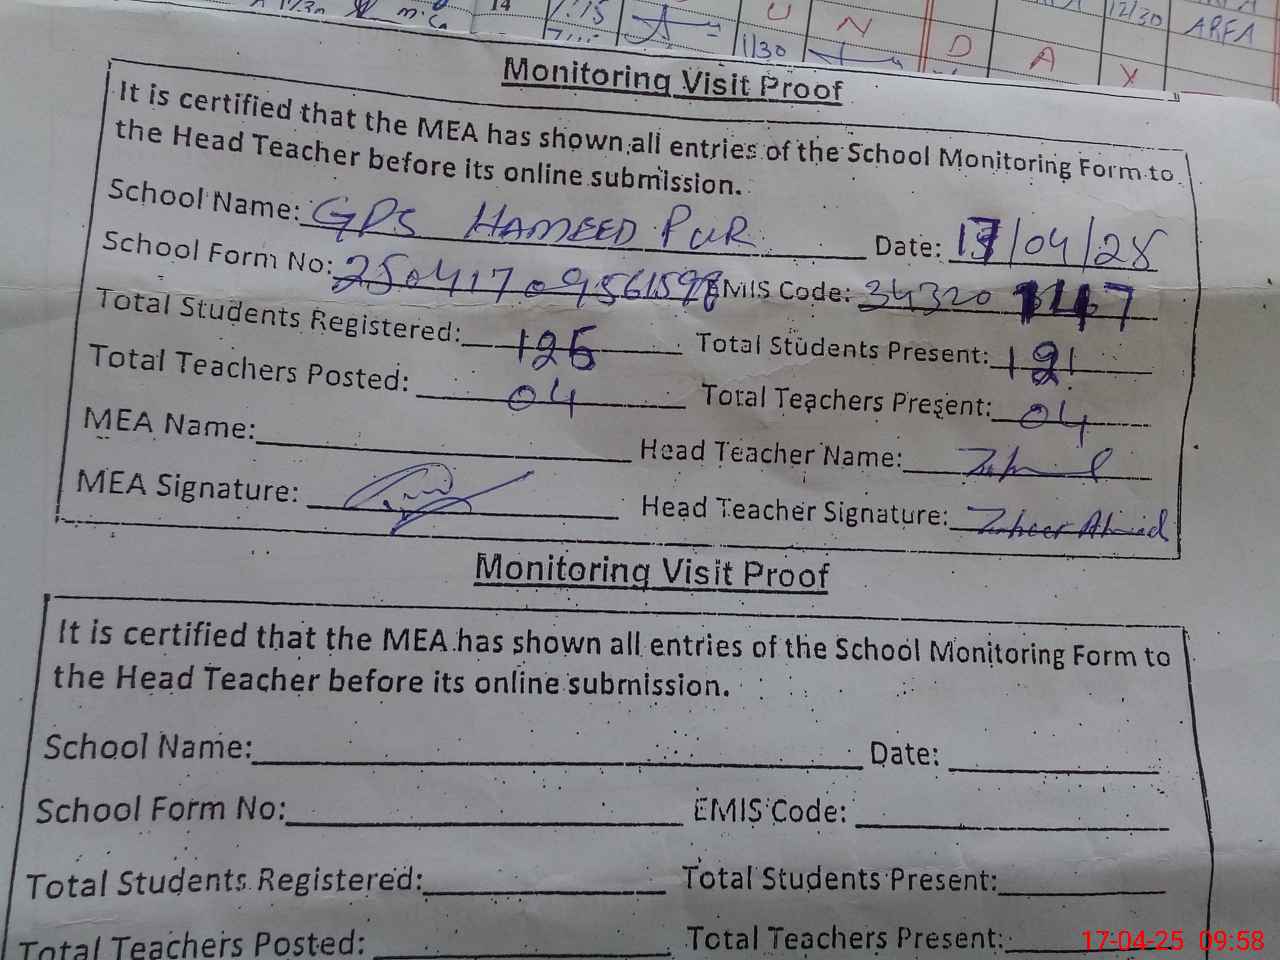 14
U
N
D
A
Y
1/30
12/30
ARFA
Monitoring Visit Proof
It is certified that the MEA has shown all entries of the School Monitoring Form to
the Head Teacher before its online submission.
School Name: GPS HAMEED PUR Date: 17/04/25
School Form No: 25041709561598 EMIS Code: 34320147
Total Students Registered: 126 Total Students Present: 121
Total Teachers Posted: 04 Total Teachers Present: 04
MEA Name: Head Teacher Name:
MEA Signature: Head Teacher Signature: Zaheer Ahmed
Monitoring Visit Proof
It is certified that the MEA has shown all entries of the School Monitoring Form to
the Head Teacher before its online submission.
School Name: Date:
School Form No: EMIS Code:
Total Students Registered: Total Students Present:
Total Teachers Posted: Total Teachers Present:
17-04-25 09:58